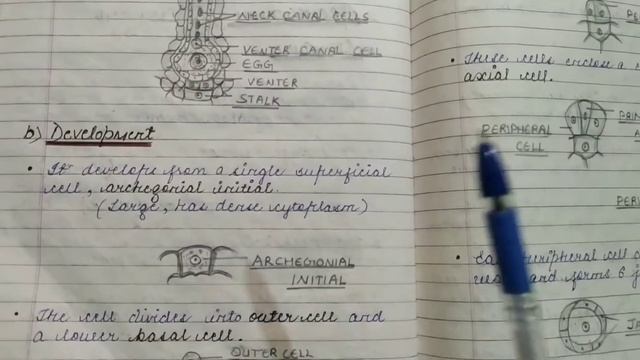 NECK CANAL CELLS
VENTER CANAL CELL
EGG
VENTER
STALK
b) Development
• It develops from a single superficial
cell, archegonial initial.
(Large, has dense cytoplasm)
ARCHEGIONIAL
INITIAL
• The cell divides into outer cell and
a lower basal cell.
OUTER CELL
• These cells enclose a
axial cell.
PERIPHERAL
CELL
• peripheral cell
and forms 6